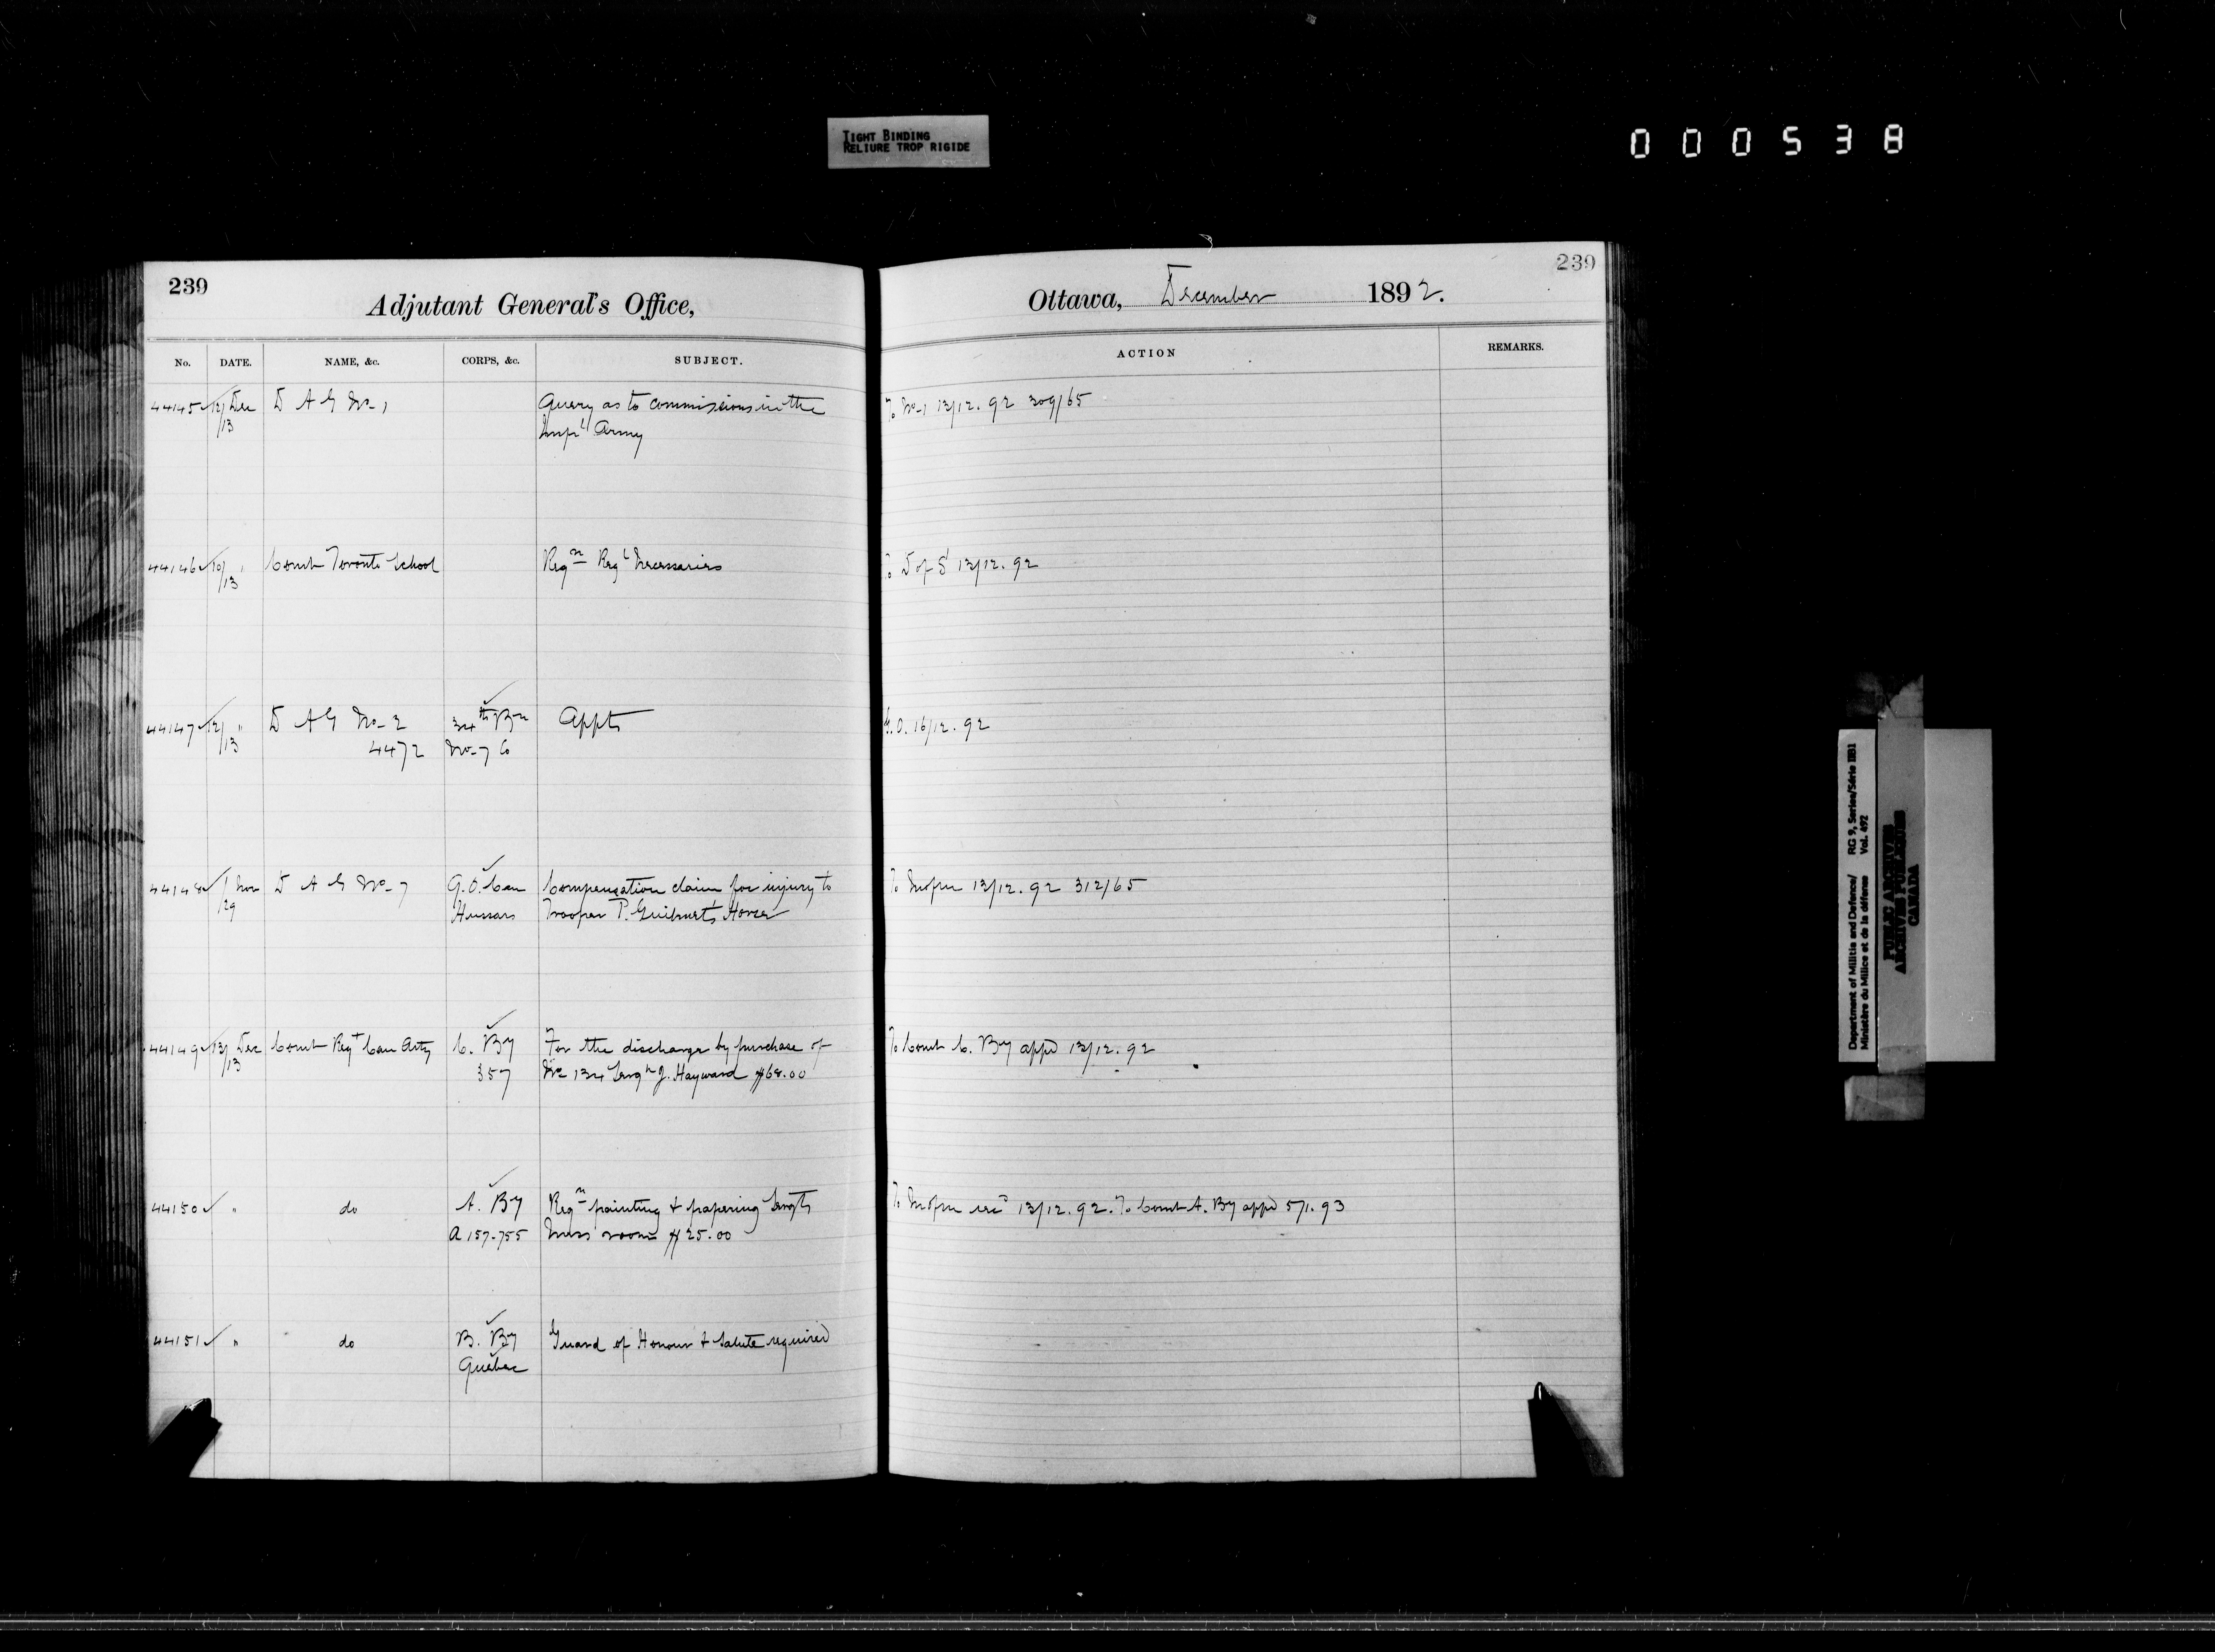 TIGHT BINDING
RELIURE TROP RIGIDE
000538
239
Adjutant General's Office,
No. DATE. NAME, &c. CORPS, &c. SUBJECT.
239
Ottawa, December 1892.
ACTION REMARKS.
44145 12/13 Dec D A G No-1 Query as to commissions in the To No-1 13/12.92 309/65
Impl Army
44146 10/13 " Comdt Toronto School Reqn Regl Necessaries To D of S 13/12.92
44147 12/13 " D A G No-2 34th Bn Appts G.O. 16/12.92
4472 No-7 Co
44148 1/29 Nov D A G No-7 Q.O. Can Compensation claim for injury to To 13/12.92 312/65
Hussars Trooper P. Horse
44149 13/13 Dec Comdt Regt Can Arty C. By For the discharge by purchase of To Comdt C. By appd 13/12.92
357 No 134 J. Hayward $68.00
44150 " do A. By Reqn painting & papering Sergts To 13/12.92. To Comdt A. By appd 5/1.93
A 157-755 Mess room $25.00
44151 " do B. By Guard of Honour & Salute required
Quebec
Department of Militia and Defence/ RG 9, Series/Série IIB1
Ministère du Milice et de la défense Vol. 492
PUBLIC ARCHIVES
ARCHIVES PUBLIQUES
CANADA